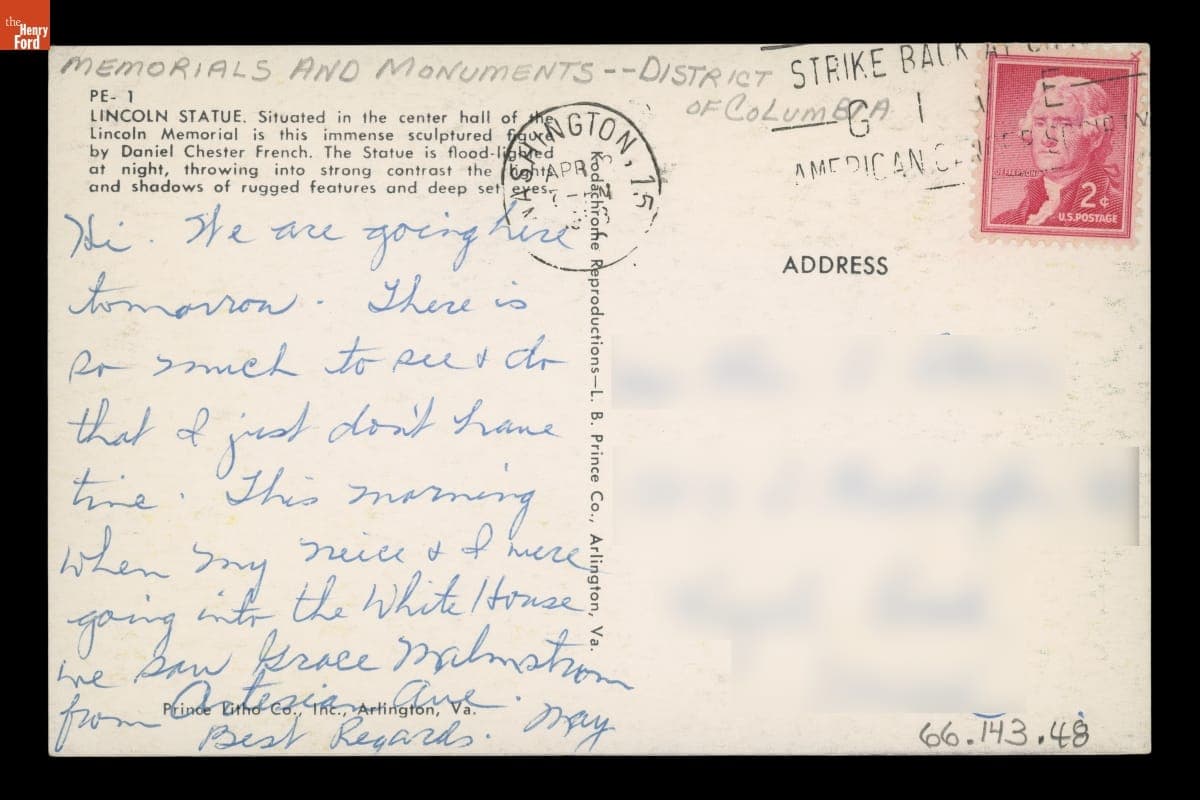 the
Henry
Ford
MEMORIALS AND MONUMENTS -- DISTRICT
OF COLUMBIA
PE- 1
LINCOLN STATUE. Situated in the center hall of the
Lincoln Memorial is this immense sculptured figure
by Daniel Chester French. The Statue is flood-lighted
at night, throwing into strong contrast the lights
and shadows of rugged features and deep set eyes.
Hi. We are going here
tomorrow. There is
so much to see & do
that I just don't have
time. This morning
when my neice & I were
going into the White House
we saw Grace Malmstrom
from Artesian Ave.
Best Regards. May
Prince Litho Co., Inc., Arlington, Va.
Kodachrome Reproductions—L. B. Prince Co., Arlington, Va.
WASHINGTON, 15
APR
STRIKE BACK AT
GIVE
AMERICAN CANCER SOCIETY
JEFFERSON
2¢
U.S. POSTAGE
ADDRESS
66.143.48